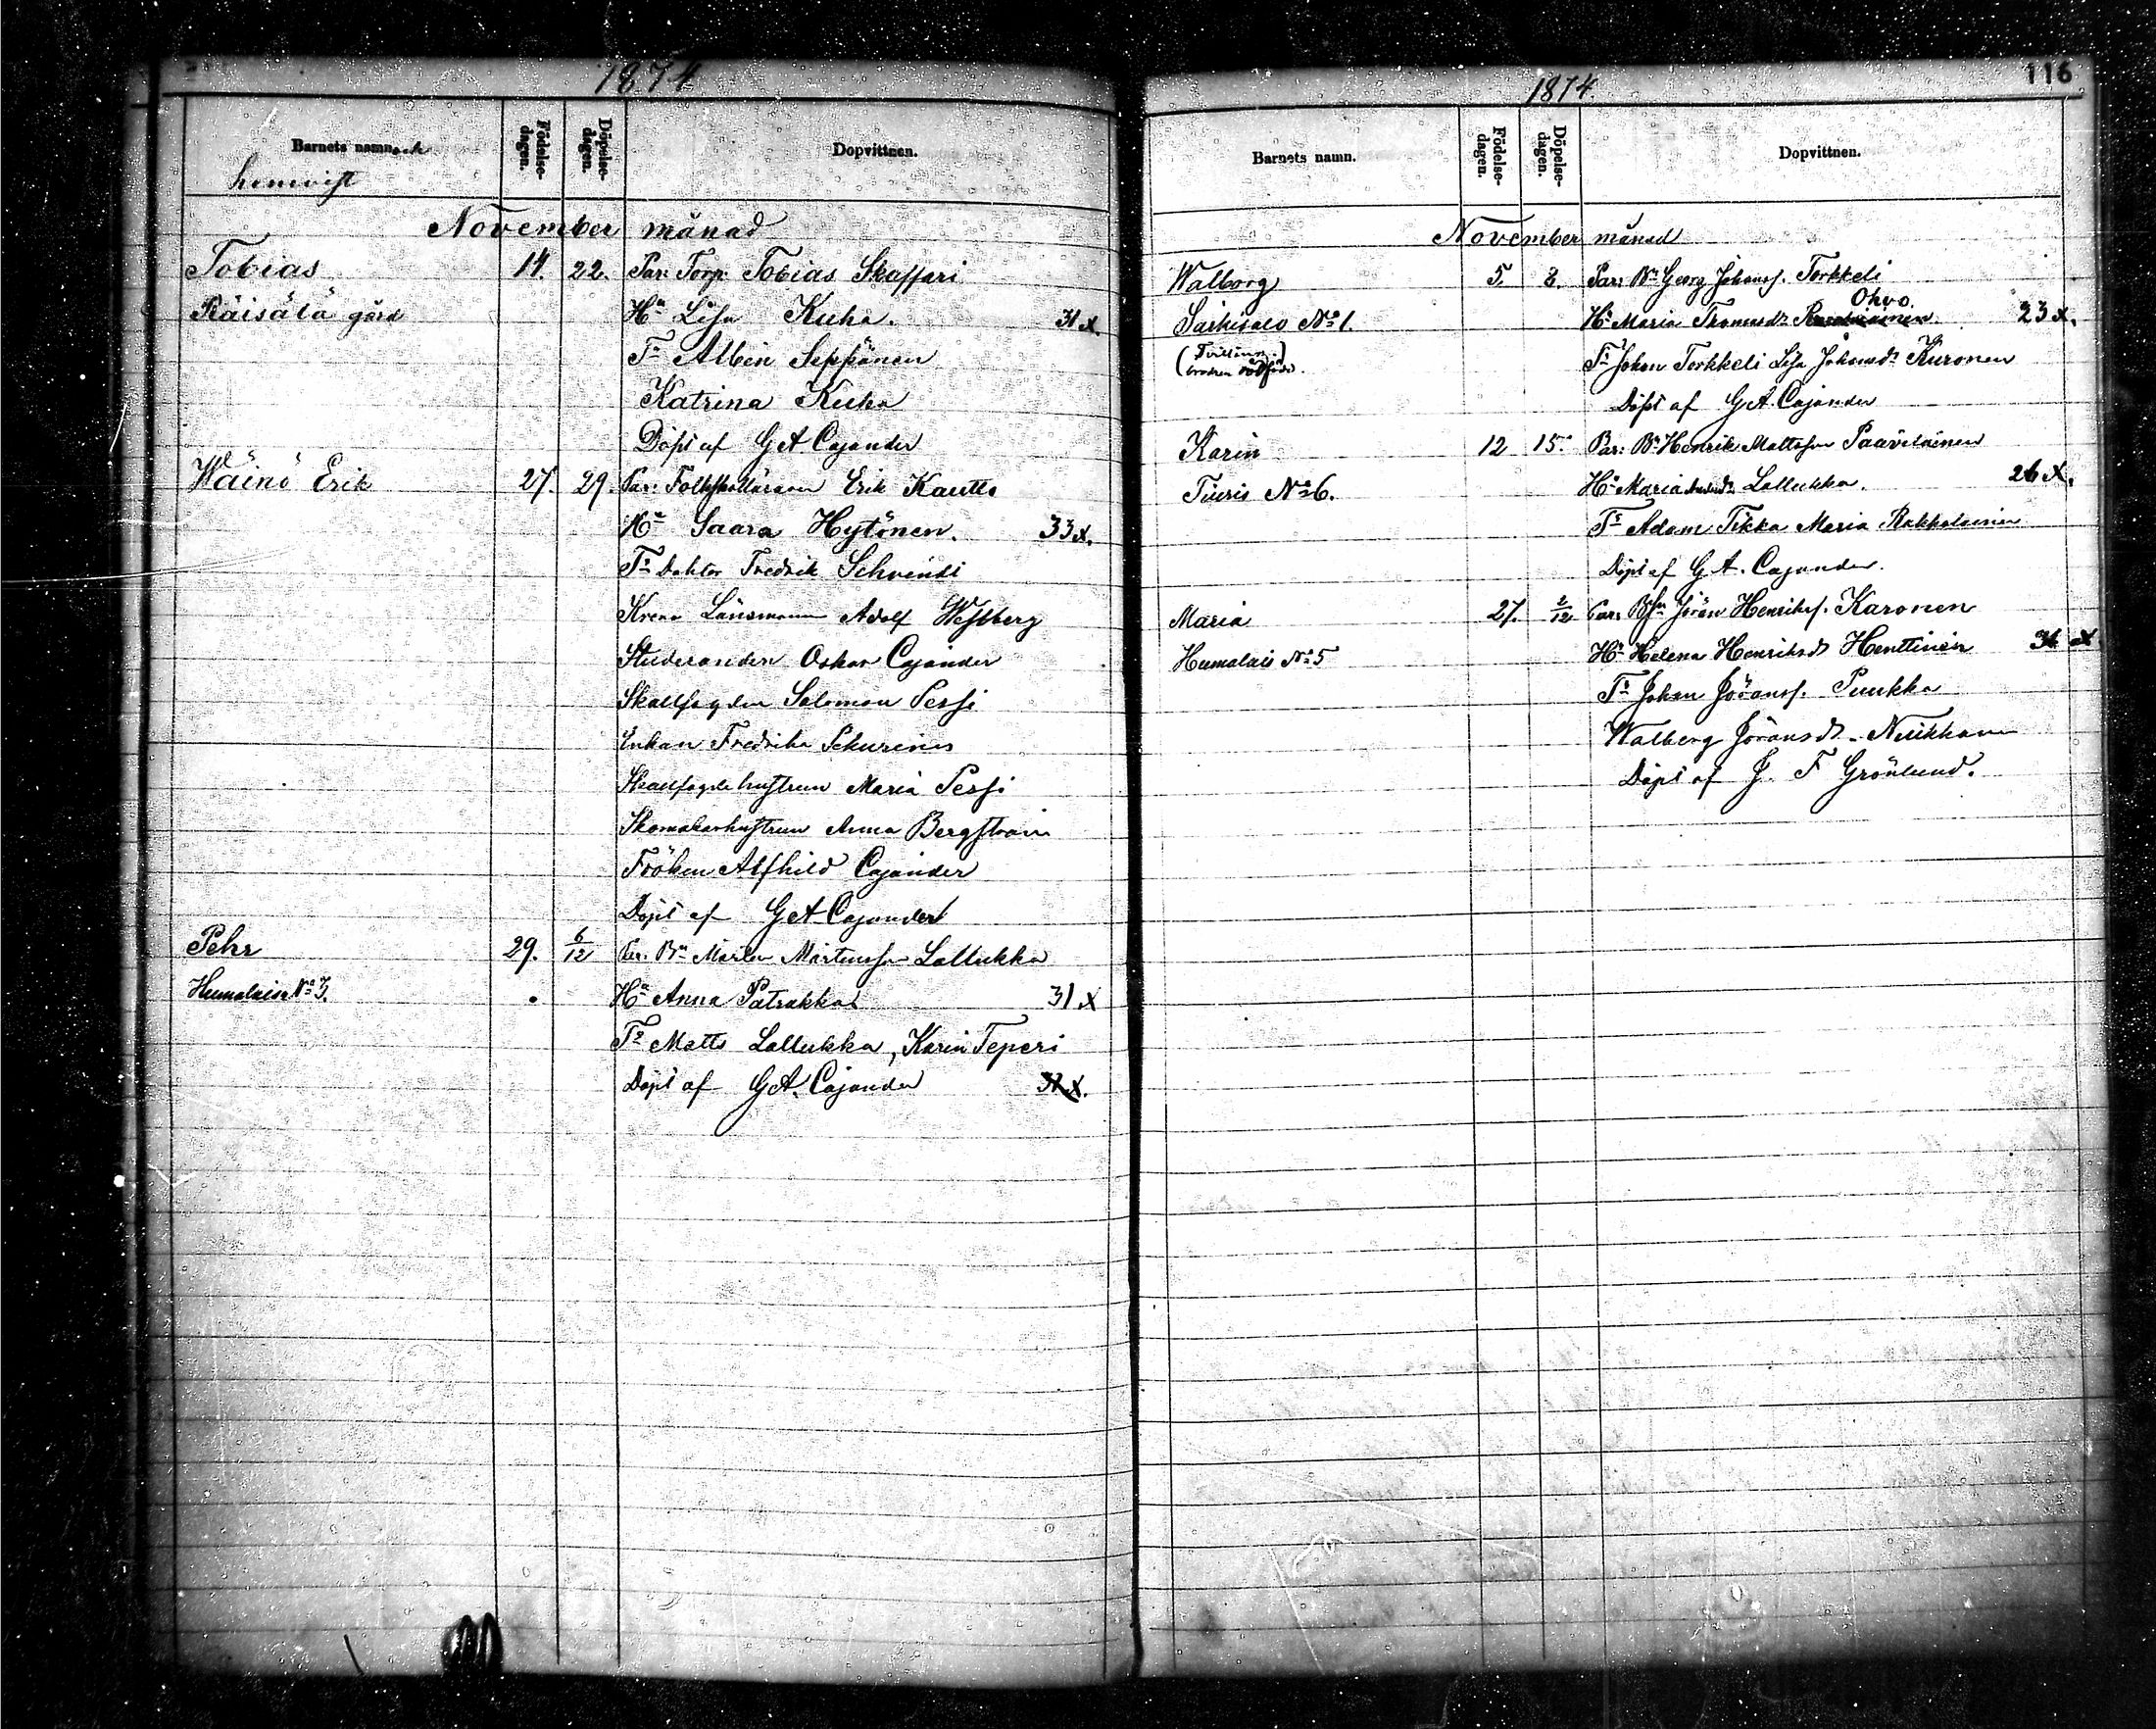 1874
Barnets namn och
hemvist
Födelse-
dagen.
Döpelse-
dagen.
Dopvittnen.
November månad
Tobias 14. 22. Par: Torp. Tobias Skaffari
Räisälä gård Hu Lisa Kuha. 31 x
Ts Albin Seppänen
Katrina Kuha
Döpt af G A Cajander
Wäinö Erik 27. 29. Par: Folkskolläraren Erik Kautto
Hu Saara Hytönen. 33 x.
Ts Doktor Fredrik Schvindt
Krono Länsmann Adolf Westberg
Studeranden Oskar Cajander
Skallfogden Salomon Perji
Enkan Fredrika
Skallfogde hustrun Maria Perji
Skomakarhustrun Anna Bergström
Fröken Alfhild Cajander
Döpt af G A Cajander
Pehr 29. 6/12 Par: Bn Mårten Mårtensson Lallukka
Humalais No 3. Hu Anna Patrakka 31 x
Ts Matts Lallukka, Karin Teperi
Döpt af G A. Cajander 31 x.
116
1874.
Barnets namn.
Födelse-
dagen.
Döpelse-
dagen.
Dopvittnen.
November månad
Walborg 5. 8. Par: Bn Georg Johanss. Torkkeli
Ohvo.
Särkisalo No 1. Hu Maria Thomasdr 23 x.
(Tvilling
brodren dödfödd). Ts Johan Torkkeli Lisa Johansdr Kuronen
Döpt af G A. Cajander
Karin 12 15. Par: Bn Henrik Mattsson Paavilainen
Tiuris No 6. Hu Maria Lallukka. 26 x.
Ts Adam Tikka Maria Rakkolainen
Döpt af G A. Cajander.
Maria 27. 2/12 Par: Jöran Henrikss. Karonen
Humalais No 5 Hu Helena Henriksdr Henttinen 31 x
Ts Johan Jöranss. Puukka
Walborg Jöransdr Neikkanen
Döpt af J. F Grönlund.